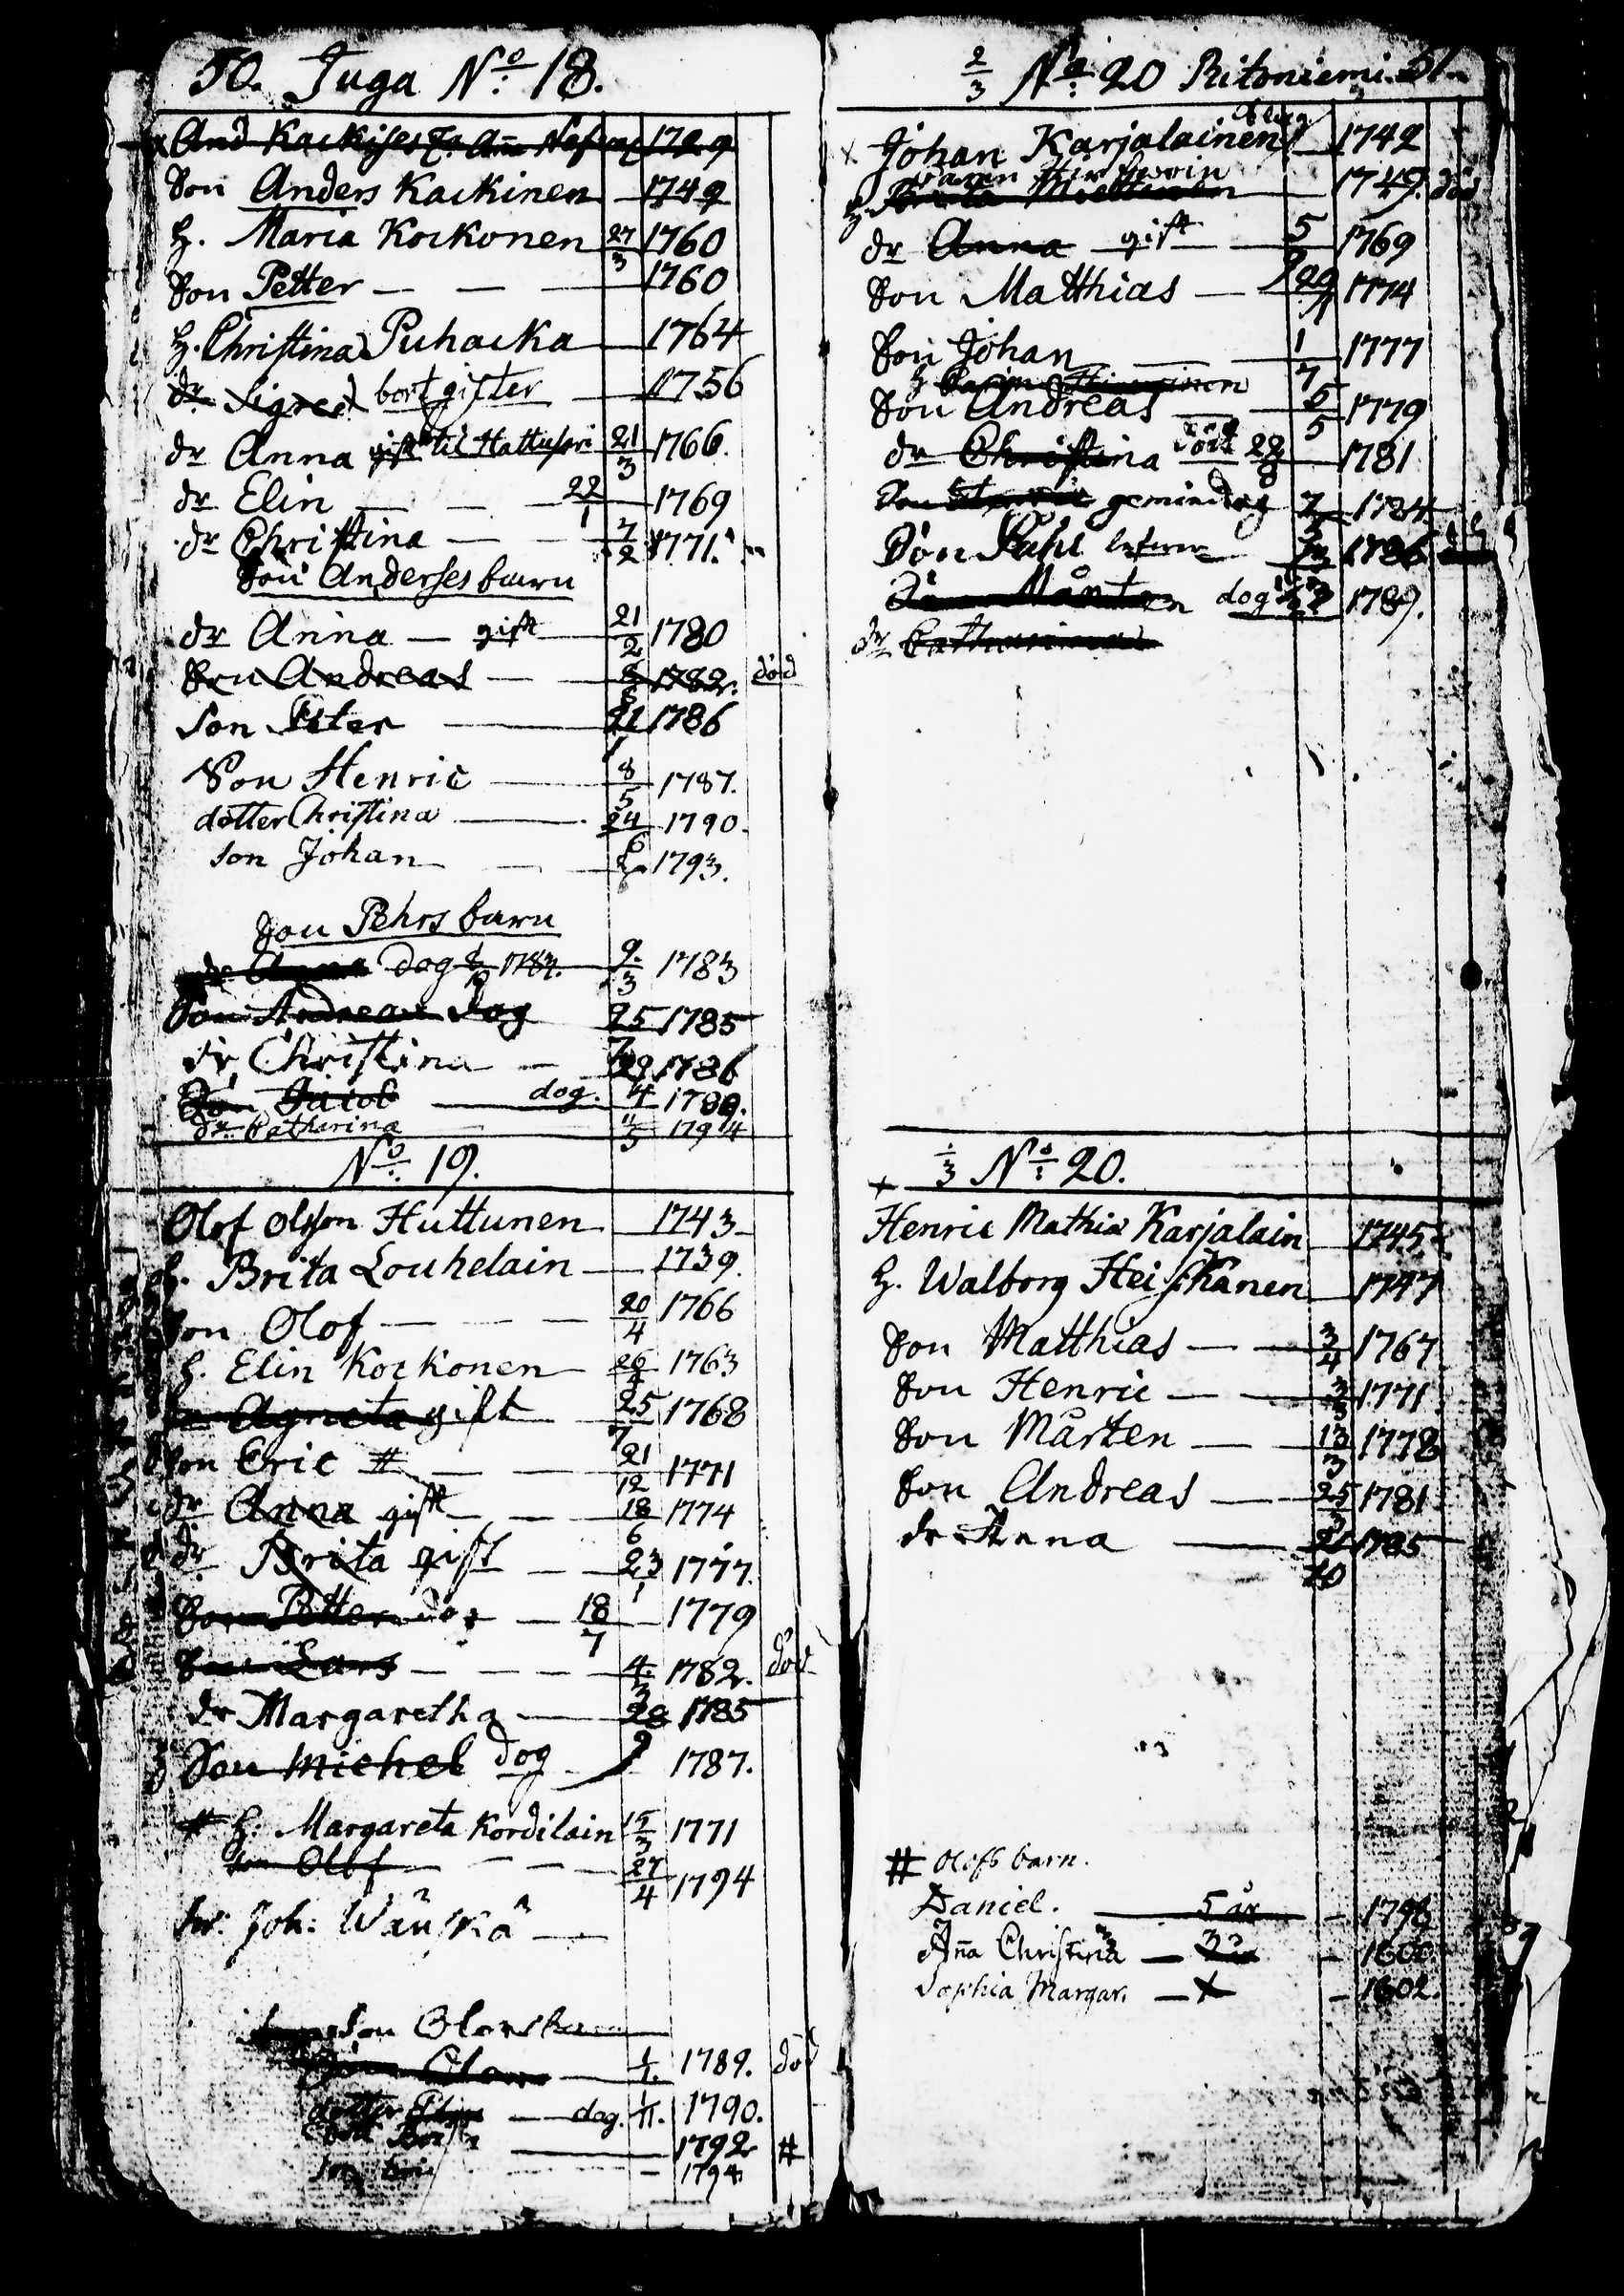 50. Juga No: 18.
And Kackises Ea Aña 1729
Son Anders Kackinen 1749
H. Maria Kockonen 27/3 1760
Son Petter 1760
H. Christina Puhacka 1764
dr Sigred bortgifter 1756
dr Anna gift til 21/3 1766.
dr Elin 22/1 1769
dr Christina 7/2 1771.
Son Anderses barn
dr Anna gift 21/2 1780
Son Andreas 1782. död
Son Peter 21/1 1786
Son Henric 8/5 1787.
dotter Christina 24 1790.
son Johan 1793.
Son Pehrs barn
dr Anna dog 1783
Son Andreas dog 25 1785
dr Christina 29 1786
Son Jacob dog. 4 1789.
dr Catharina 11/5 1794
No: 19.
Olof Olsson Huttunen 1743
H. Brita Louhelain 1739.
Son Olof 20/4 1766
H. Elin Kockonen 26/4 1763
dr Agneta gift 25/7 1768
Son Eric # 21/12 1771
dr Anna gift 18/6 1774
dr Brita gift 23/1 1777.
Son Petter dog 18/7 1779
Son Lars 4/3 1782. död
dr Margaretha 28/9 1785
Son Michel dog 1787.
# H. Margareta Kordilain 15/3 1771
son Olof 27/4 1794
Joh: Wänskä
Son Olofs barn
Son Olov 1/1. 1789. död
dotter Elin dog. 1/11. 1790.
1792 #
son Eric 1794
2/3 No: 20 Ritoniemi. 51.
Johan Karjalainen 1742
H. Brita Miettinen 1749. död
dr Anna gift 5 1769
Son Matthias 29/1 1774
Son Johan 1/7 1777
H
Son Andreas 6/5 1779
dr Christina död 28 1781
Son gemindog 7 1784
Son Påhl 1786
Son Mårten dog 1789.
dr Catharina
1/3 No: 20.
Henric Mathia Karjalain 1745
H. Walborg Heiskanen 1747
Son Matthias 3/4 1767
Son Henric 3/3 1771
Son Mårten 13/3 1778
Son Andreas 25/3 1781
dr Anna 21/10 1785
# Olofs barn.
Daniel. 5 år 1798
Aña Christina 3 1800
Sophia Margar. 1802.